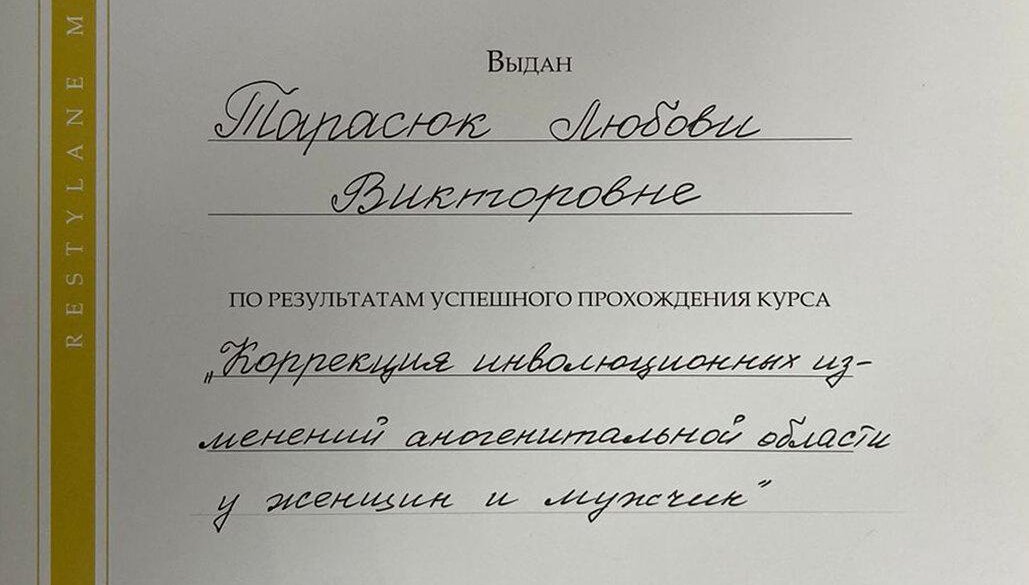 RESTYLANE M
Выдан
Тарасюк Любови
Викторовне
ПО РЕЗУЛЬТАТАМ УСПЕШНОГО ПРОХОЖДЕНИЯ КУРСА
„Коррекция инволюционных из-
менений аногенитальной области
у женщин и мужчин"